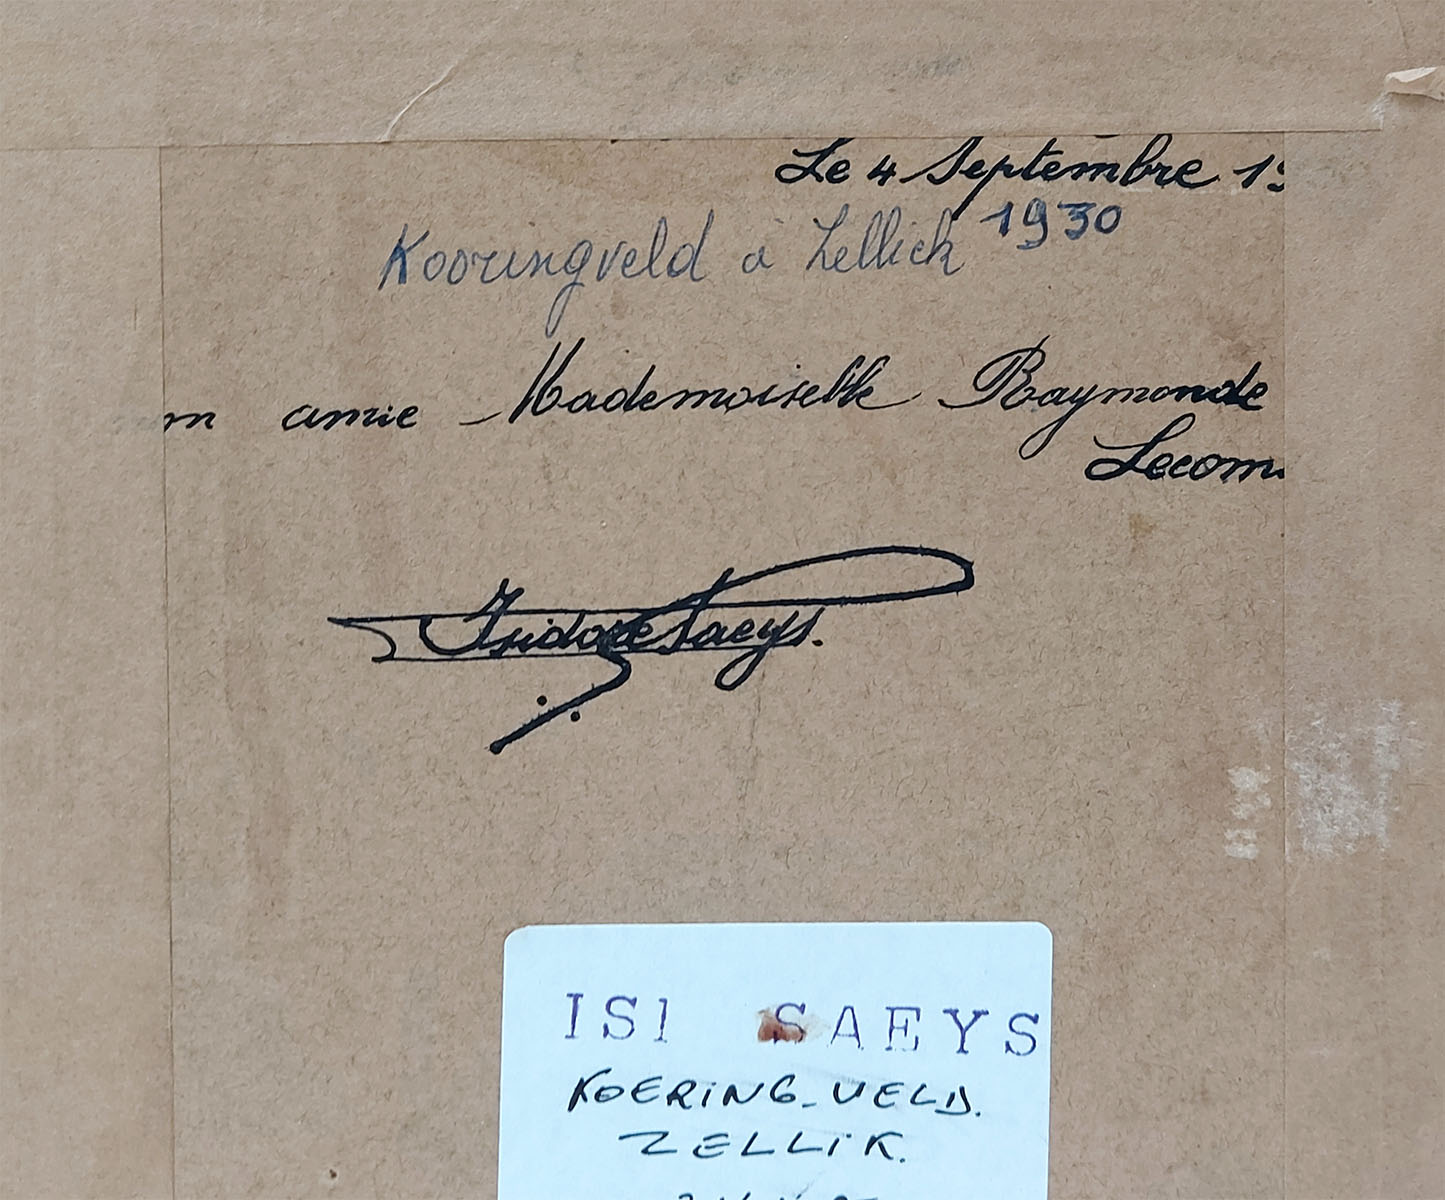 Le 4 Septembre 19
1930
Kooringveld à Zellick
n amie Mademoiselle Raymonde
Lecom
Isidore Saeys.
ISI SAEYS
KOERING-VELD.
ZELLIK.